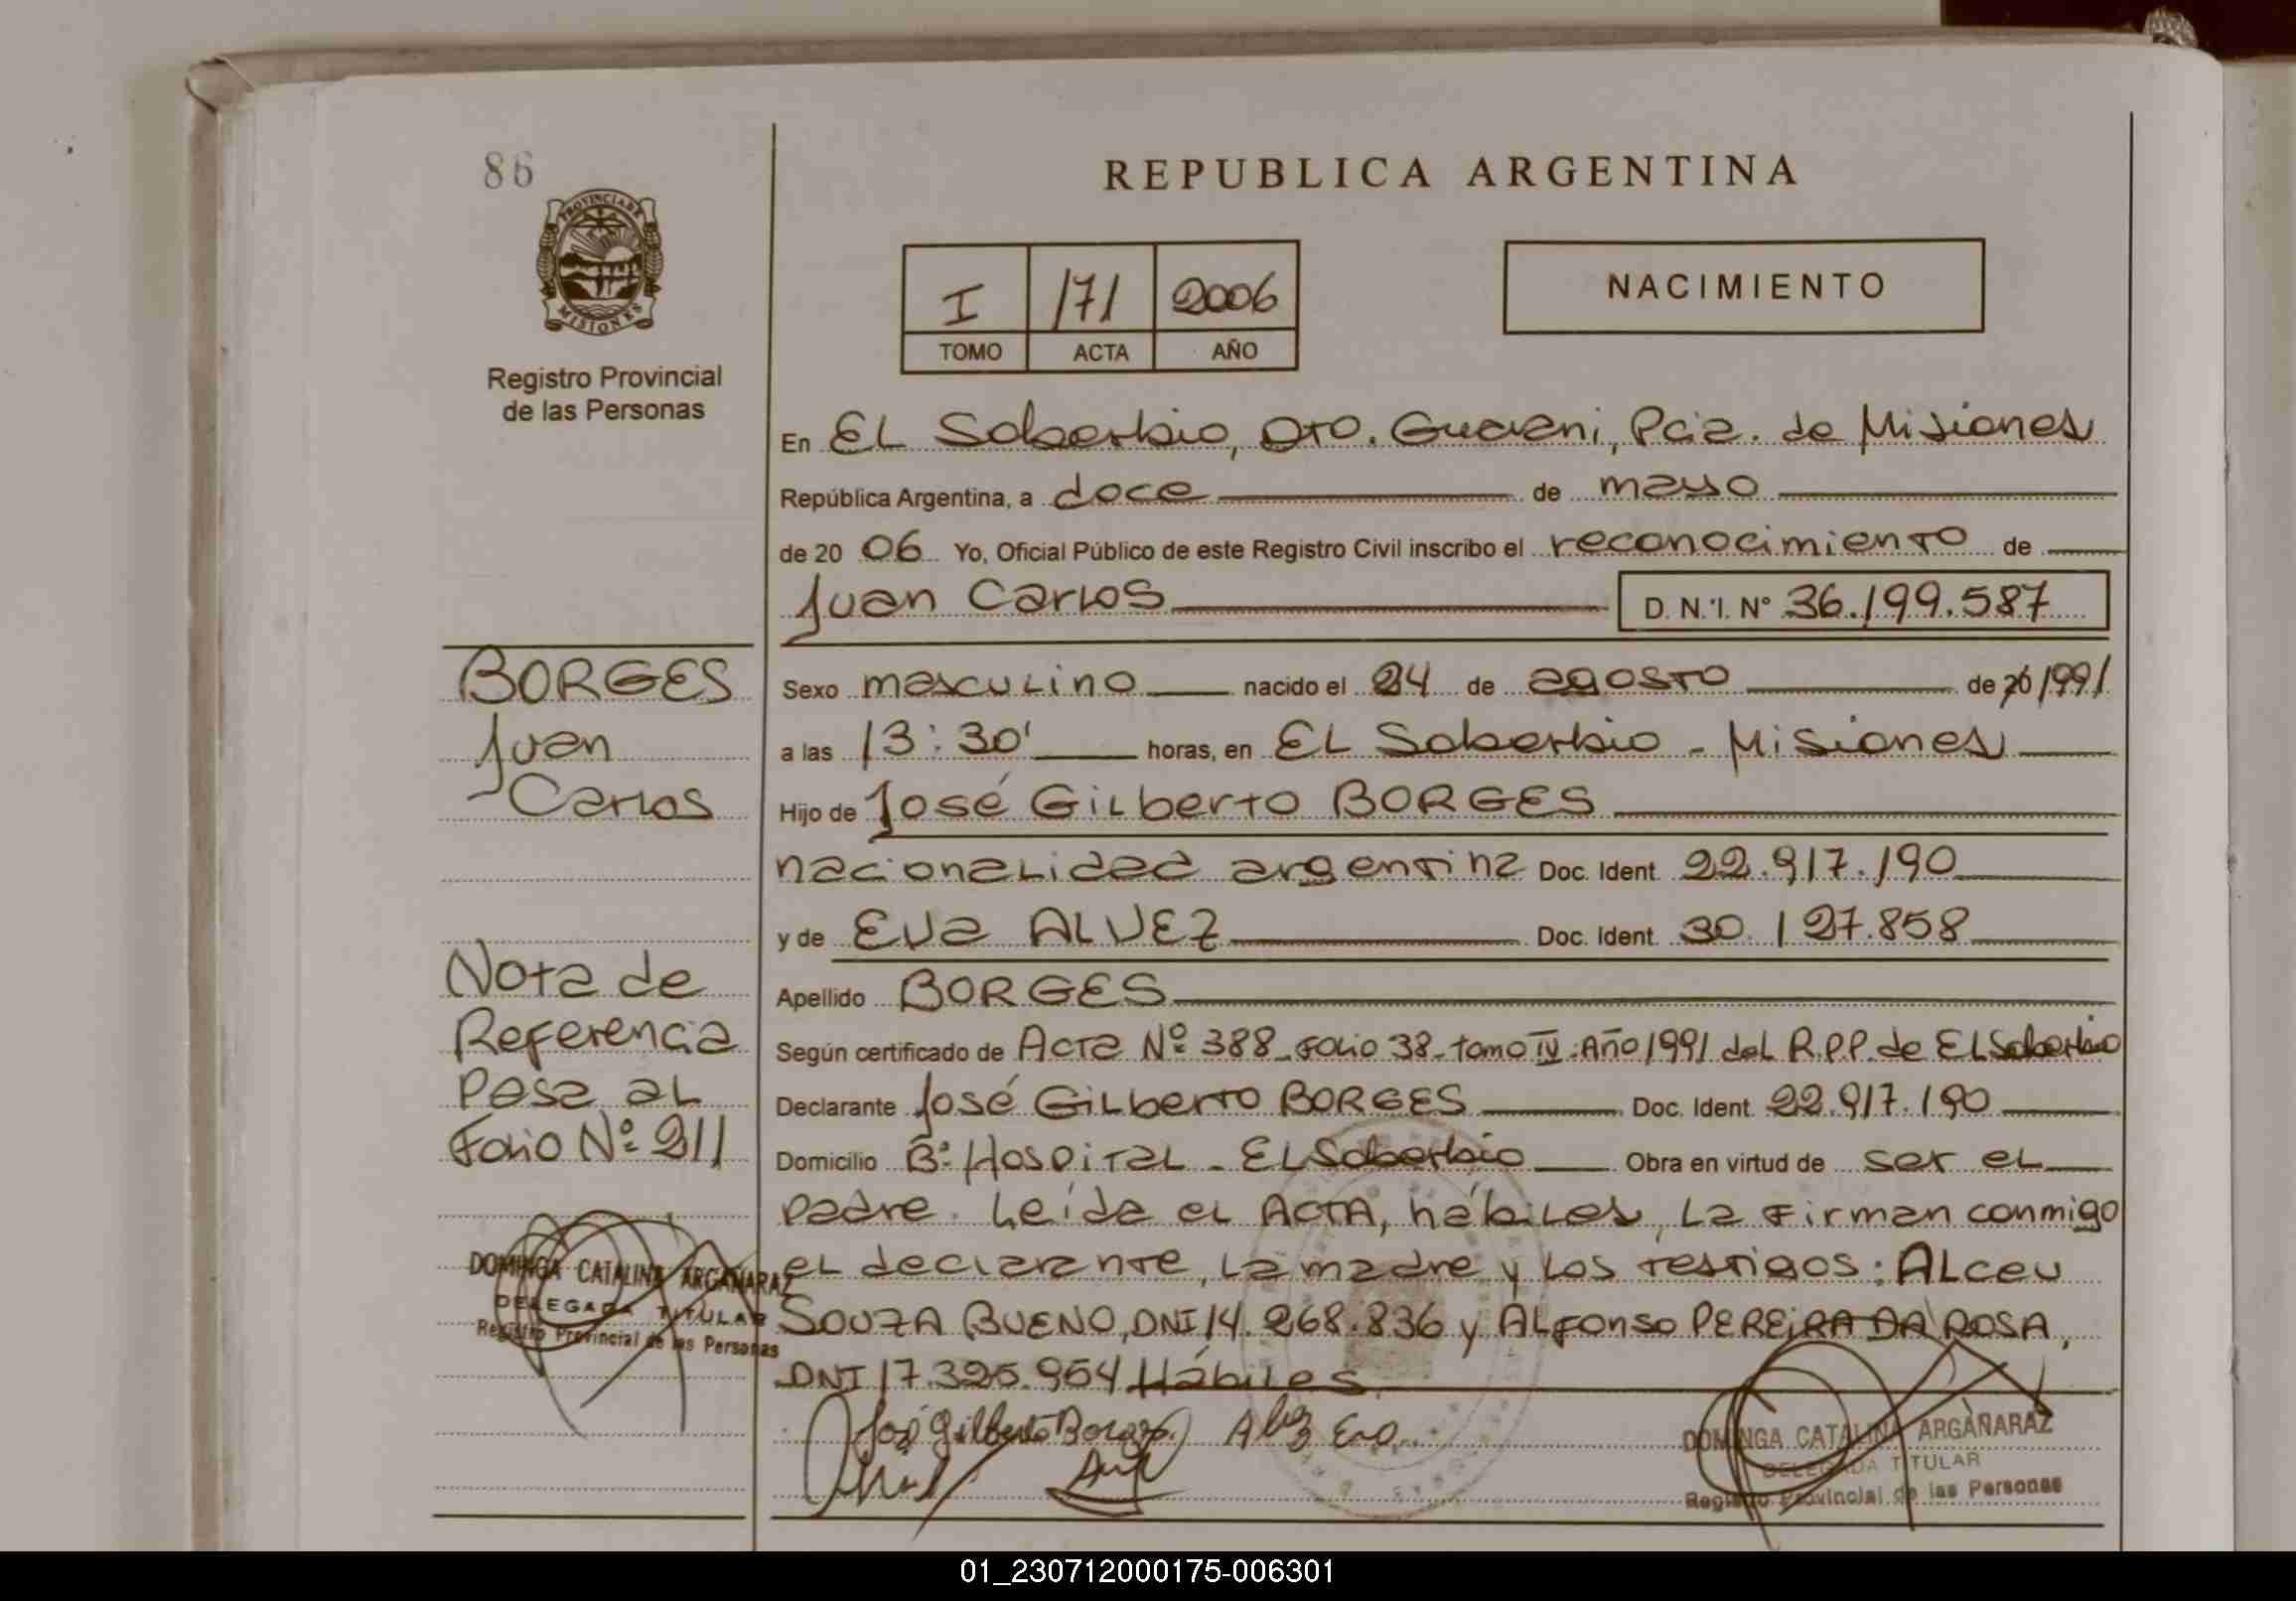 86
REPUBLICA ARGENTINA
PROVINCIA DE
MISIONES
Registro Provincial
de las Personas
I 171 2006
TOMO ACTA AÑO
NACIMIENTO
En EL Soberbio, Dto. Guaraní, Pcia. de Misiones
República Argentina, a doce de mayo
de 20 06 Yo, Oficial Público de este Registro Civil inscribo el reconocimiento de
Juan Carlos D.N.I. Nº 36.199.587
BORGES
Juan
Carlos
Sexo masculino nacido el 24 de agosto de 20 1991
a las 13:30' horas, en EL Soberbio - Misiones
Hijo de José Gilberto BORGES
nacionalidad argentina Doc. Ident. 22.917.190
y de Eva ALVEZ Doc. Ident. 30.127.858
Apellido BORGES
Según certificado de Acta Nº 388 - Folio 38 - tomo IV - Año 1991 del R.P.P. de EL Soberbio
Declarante José Gilberto BORGES Doc. Ident. 22.917.190
Domicilio Bº Hospital - EL Soberbio Obra en virtud de ser el
padre. Leída el ACTA, hábiles, la firman conmigo
el declarante, la madre y los testigos: Alceu
SOUZA BUENO, DNI 14.268.836 y Alfonso PEREIRA DA ROSA,
DNI 17.325.954 Hábiles.
Nota de
Referencia
Pasa al
Folio Nº 211
DOMINGA CATALINA ARGAÑARAZ
DELEGADA TITULAR
Registro Provincial de las Personas
José Gilberto Borges Alvez Eva
DOMINGA CATALINA ARGAÑARAZ
DELEGADA TITULAR
Registro Provincial de las Personas
01_230712000175-006301